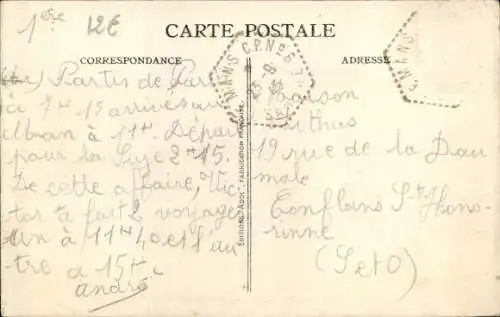 1ère
12€
CARTE POSTALE
CORRESPONDANCE
ADRESSE
MANS C.P. No 6
23-8
MANS
Partis de Paris
à 7h 15 arrivés au
Mans à 11h. Départ
pour la Suze 2h15.
De cette affaire, Vic
tor a fait 2 voyages
un à 11h40 et l'au
tre à 15h
André
Maison
19 rue de la Dau
male
Conflans Ste Hono
rinne
(S et O)
EDITIONS "ADOL" FABRICATION FRANÇAISE